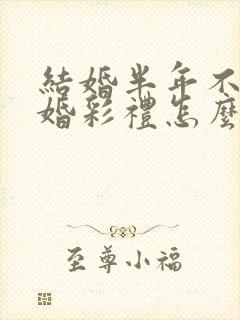 結婚半年不
婚彩禮怎麼
至尊小福